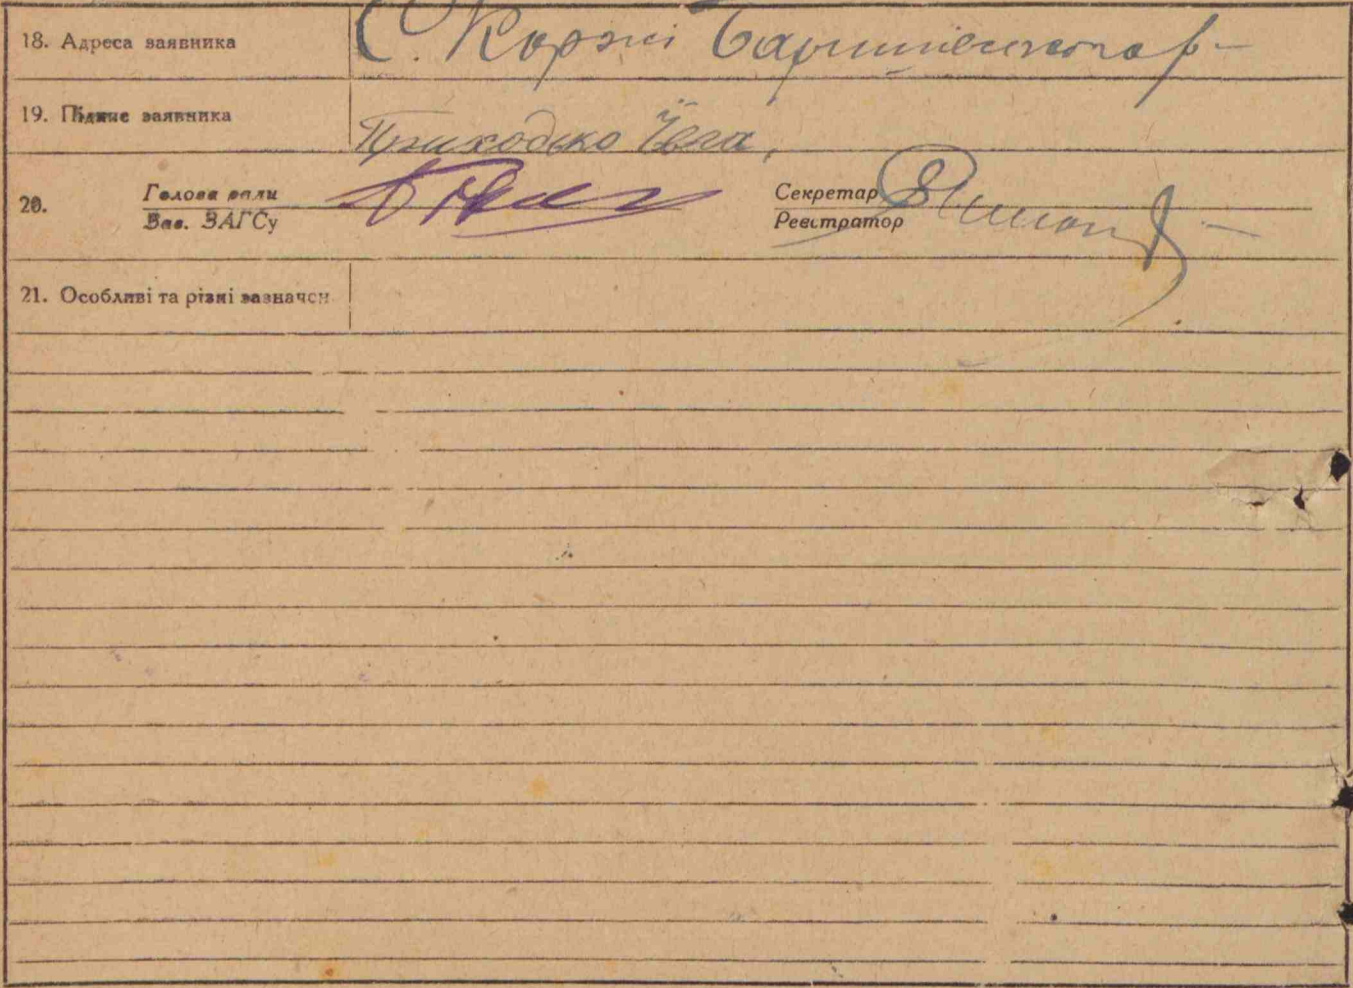 18. Адреса заявника С. Коржі Баришівського р-
19. Підпис заявника Приходько Ївга,
20. Голова ради Секретар
Зав. ЗАГСу Реєстратор
21. Особливі та різні зазначен